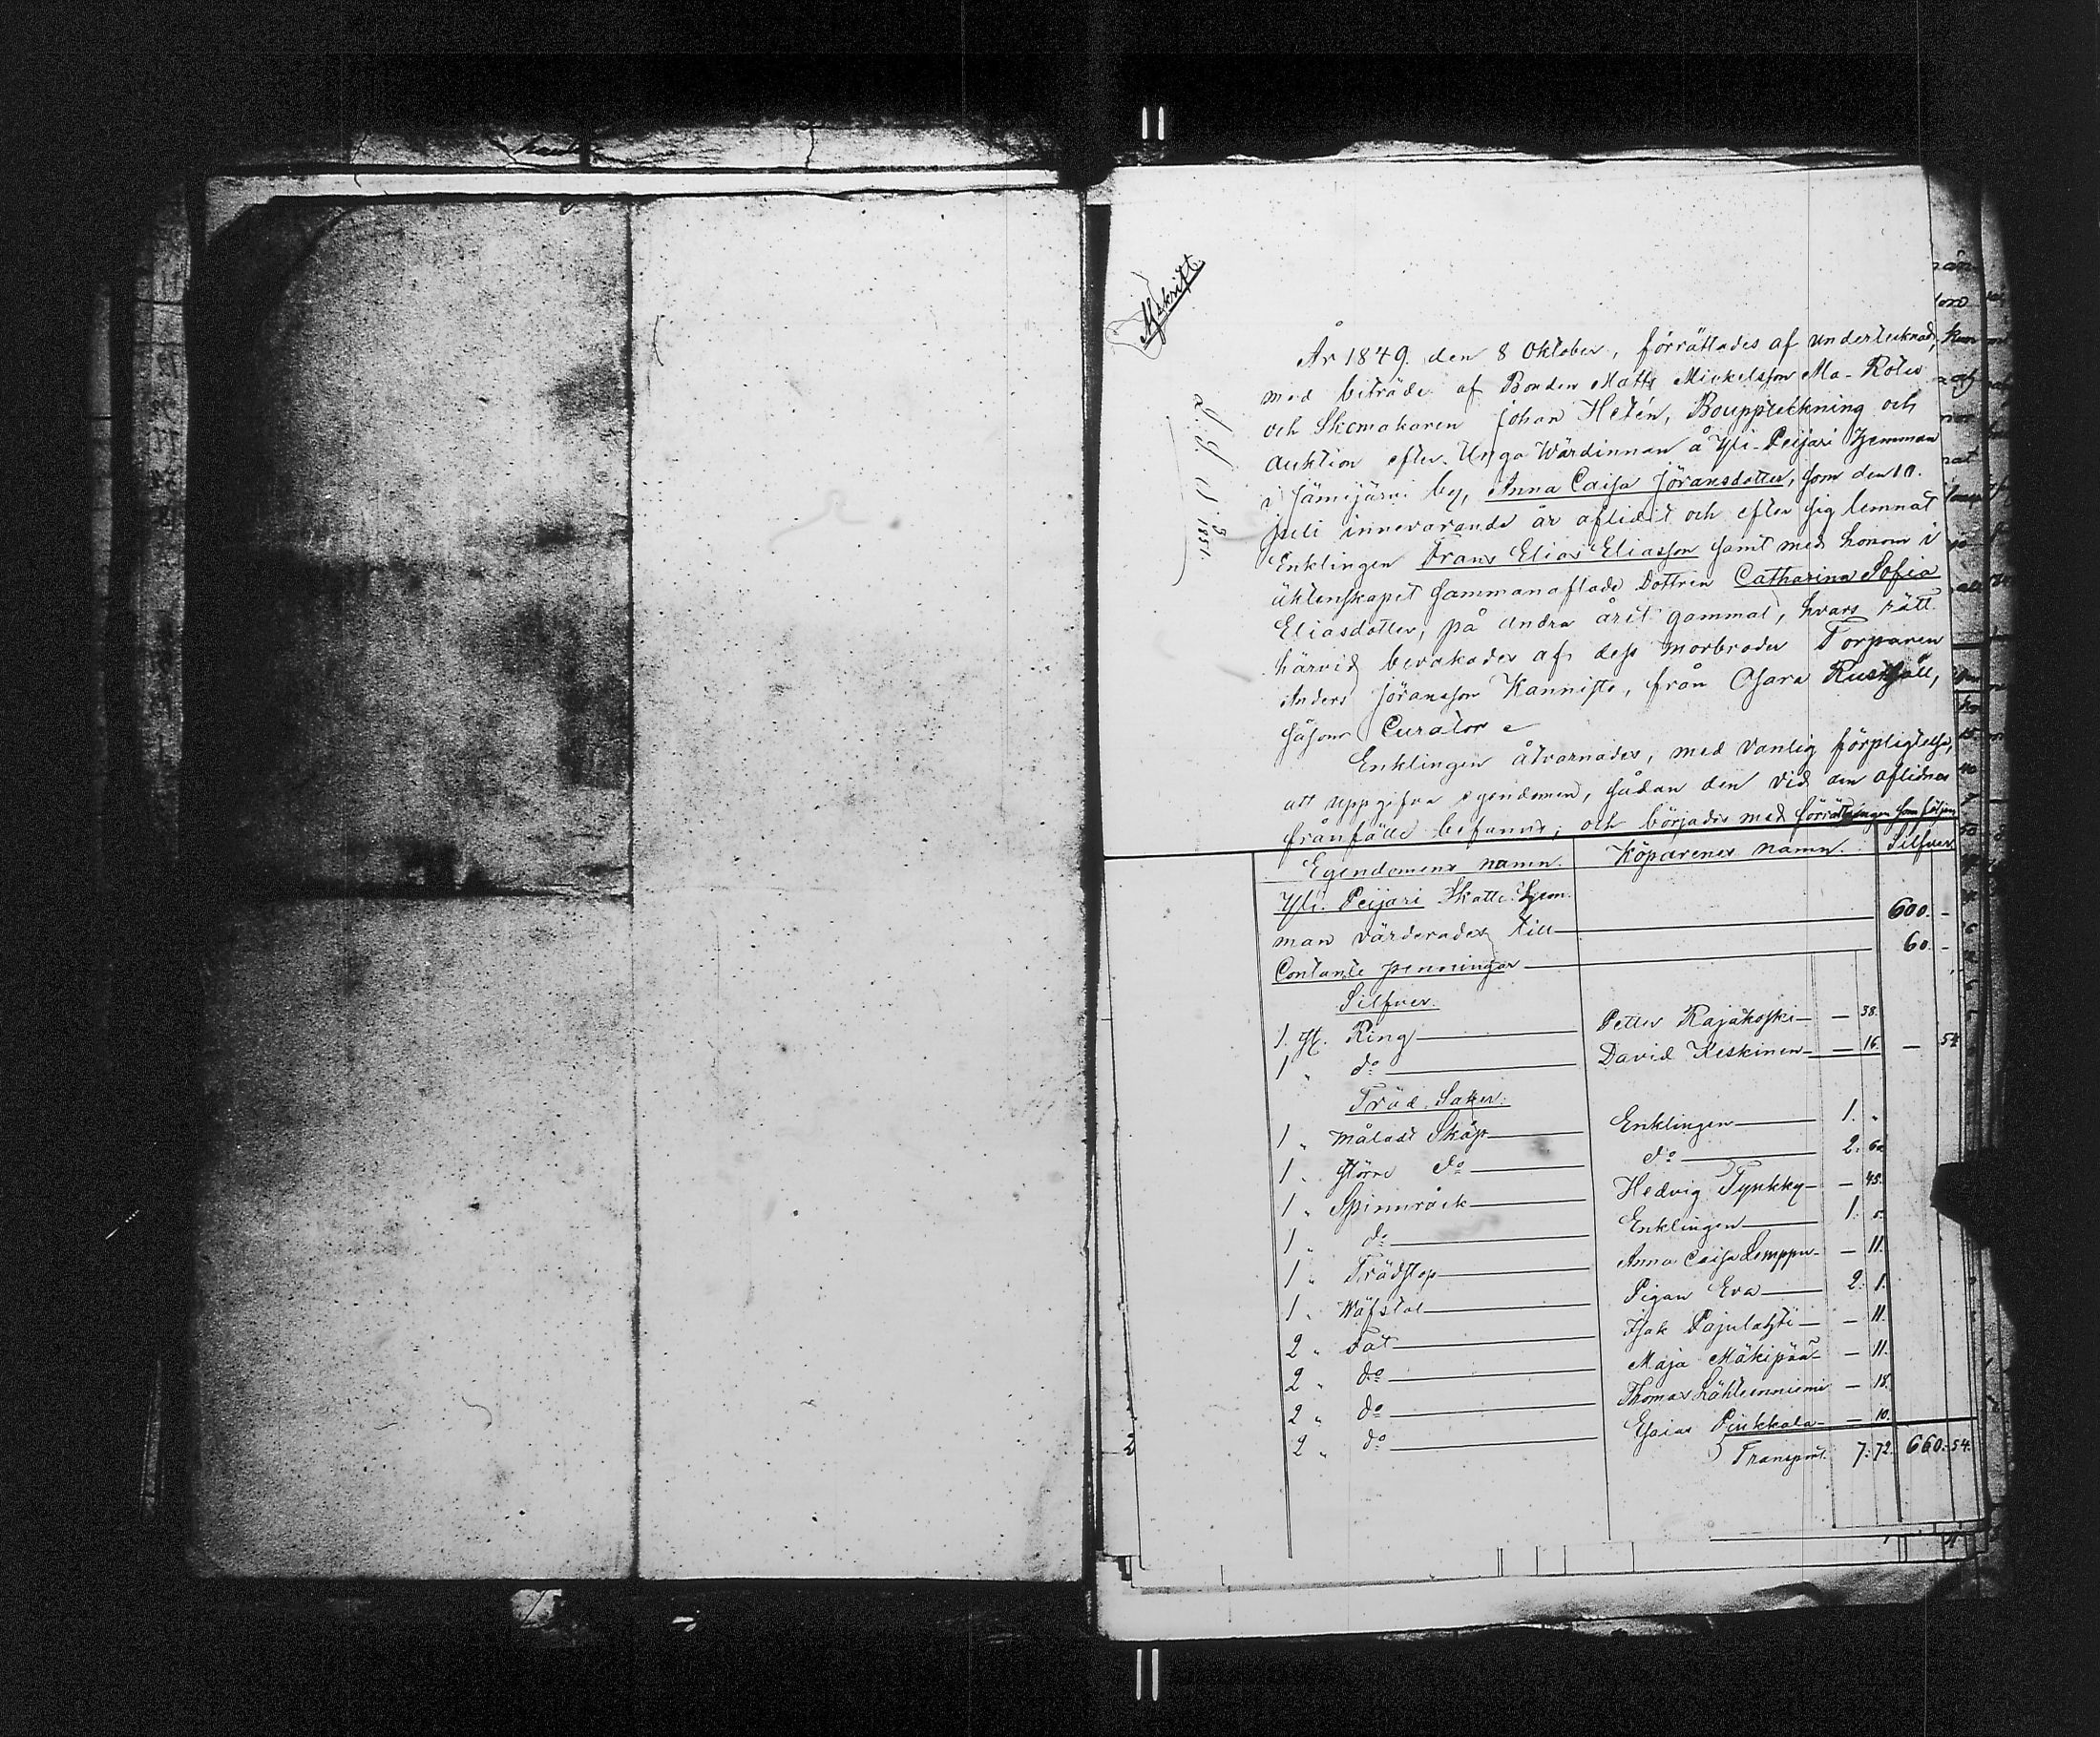 Afskrift.
År 1849. den 8 Oktober, förrättades af undertecknad,
med biträde af Bonden Matts Mickelsson Ala-Röliö
och Skomakaren Johan Helén, Bouppteckning och
Auktion efter Unga Wärdinnan å Yli-Peijari Hemman
i Jämijärvi by, Anna Caisa Jöransdotter, som den 10.
Juli innevarande år aflidit och efter sig lemnat
Enklingen Frans Elias Eliasson samt med honom i
äktenskapet sammanaflade Dottren Catharina Sofia
Eliasdotter, på andra året gammal, hvars rätt
härvid bevakades af dess morbroder Torparen
Anders Jöransson Kannisto, från Osara Rusthåll,
såsom Curator
Enklingen åtvarnades, med vanlig förpligtelse,
att uppgifva egendomen, sådan den vid den aflidnes
frånfälle befanns; och börjades med förrättningen som följer
Egendomens namn. Köparenes namn. Silfver
Yli-Peijari Skatte Hem-
man värderades till 600. -
Contante penningar 60. -
Silfver.
1. st. Ring Petter Rajakoski — 38.
1 " do David Keskinen — 16. — 54
Träd Saker.
1 " måladt Skåp Enklingen 1. "
1 " större do do 2: 60
1 " Spinnråck Hedvig Tynkky — 45.
1 " do Enklingen 1. 5.
1 " Trädstop Anna Caisa Lemppu — 11.
1 " Wäfstol Pigan Eva 2: 1.
2 " Fat Isak Pajulahti — 11.
2 " do Maja Mäkipää — 11.
2 " do Thomas Lähteenniemi — 18.
2 " do Esaias Peukkala — 10.
Transport. 7: 72. 660: 54.